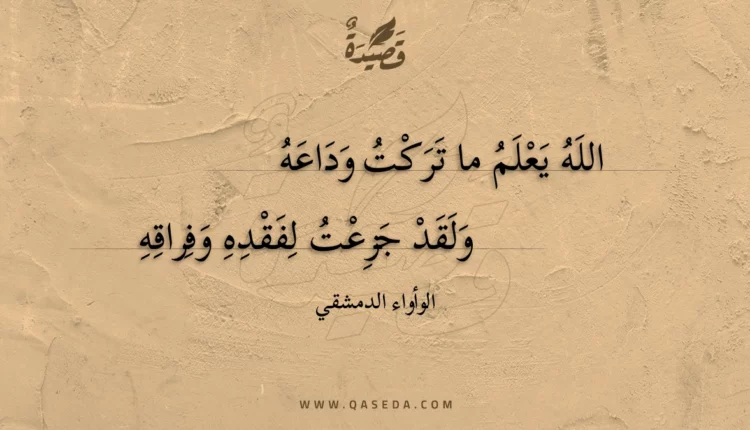 قَصِيدَةٌ
اللَهُ يَعْلَمُ ما تَرَكْتُ وَدَاعَهُ
وَلَقَدْ جَزِعْتُ لِفَقْدِهِ وَفِراقِهِ
الوأواء الدمشقي
WWW.QASEDA.COM